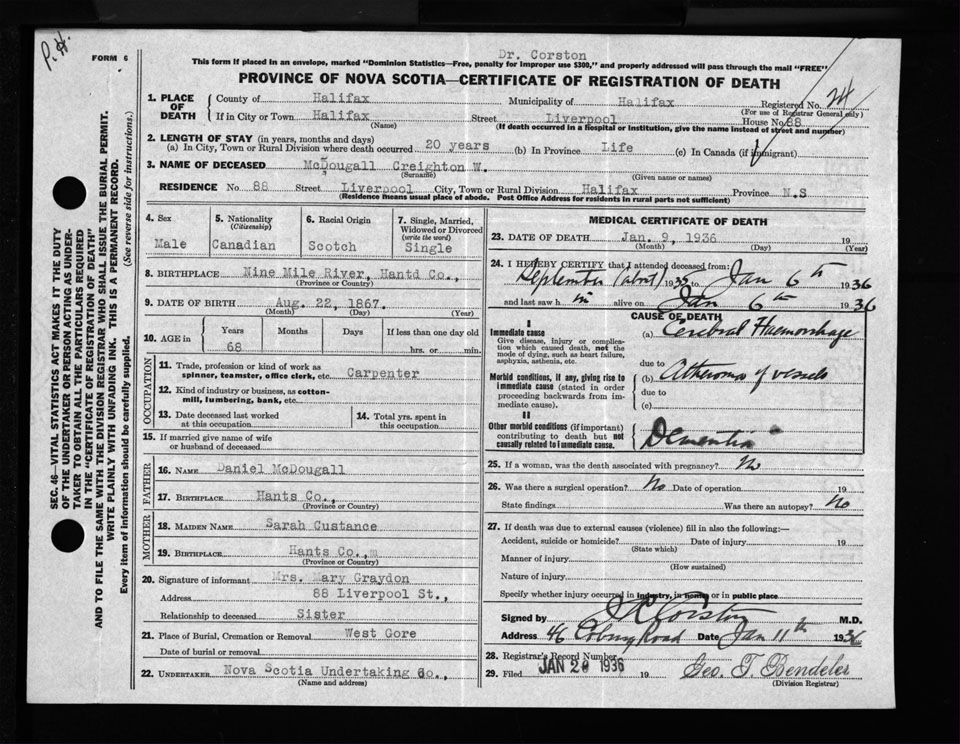 P.H.
FORM 6
Dr. Corston
This form if placed in an envelope, marked "Dominion Statistics—Free, penalty for improper use $300," and properly addressed will pass through the mail "FREE"
PROVINCE OF NOVA SCOTIA—CERTIFICATE OF REGISTRATION OF DEATH
1. PLACE OF DEATH
County of Halifax Municipality of Halifax Registered No. 24
(For use of Registrar General only)
If in City or Town Halifax Street Liverpool House No. 88
(Name) (If death occurred in a hospital or institution, give the name instead of street and number)
2. LENGTH OF STAY (in years, months and days)
(a) In City, Town or Rural Division where death occurred 20 years (b) In Province Life (c) In Canada (if immigrant)
3. NAME OF DECEASED McDougall Creighton W.
(Surname) (Given name or names)
RESIDENCE No. 88 Street Liverpool City, Town or Rural Division Halifax Province N.S
(Residence means usual place of abode. Post Office Address for residents in rural parts not sufficient)
4. Sex
Male
5. Nationality
(Citizenship)
Canadian
6. Racial Origin
Scotch
7. Single, Married, Widowed or Divorced
(write the word)
Single
8. BIRTHPLACE Nine Mile River, Hantd Co.,
(Province or Country)
9. DATE OF BIRTH Aug. 22, 1867.
(Month) (Day) (Year)
10. AGE in
Years Months Days If less than one day old
68 hrs. or min.
OCCUPATION
11. Trade, profession or kind of work as
spinner, teamster, office clerk, etc. Carpenter
12. Kind of industry or business, as cotton-
mill, lumbering, bank, etc.
13. Date deceased last worked
at this occupation
14. Total yrs. spent in
this occupation
15. If married give name of wife
or husband of deceased
FATHER
16. NAME Daniel McDougall
17. BIRTHPLACE Hants Co.,
MOTHER
18. MAIDEN NAME Sarah Custance
19. BIRTHPLACE Hants Co.,m
(Province or Country)
20. Signature of informant Mrs. Mary Graydon
Address 88 Liverpool St.,
Relationship to deceased Sister
21. Place of Burial, Cremation or Removal West Gore
Date of burial or removal
22. UNDERTAKER Nova Scotia Undertaking Co.,
(Name and address)
MEDICAL CERTIFICATE OF DEATH
23. DATE OF DEATH Jan. 9, 1936 19
(Month) (Day) (Year)
24. I HEREBY CERTIFY that I attended deceased from:
September (abt) 1935 to Jan 6th 1936
and last saw him alive on Jan 6th 1936
CAUSE OF DEATH
I
Immediate cause
Give disease, injury or complica-
tion which caused death, not the
mode of dying, such as heart failure,
asphyxia, asthenia, etc.
(a) Cerebral Haemorrhage
due to
Morbid conditions, if any, giving rise to
immediate cause (stated in order
proceeding backwards from im-
mediate cause).
(b) Atheroma of vessels
due to
(c)
II
Other morbid conditions (if important)
contributing to death but not
causally related to immediate cause.
Dementia
25. If a woman, was the death associated with pregnancy? No
26. Was there a surgical operation? No Date of operation 19
State findings Was there an autopsy? No
27. If death was due to external causes (violence) fill in also the following:—
Accident, suicide or homicide? Date of injury 19
(State which)
Manner of injury
(How sustained)
Nature of injury
Specify whether injury occurred in industry, in home, or in public place
Signed by Corston M.D.
Address 46 Coburg Road Date Jan 11th 1936
28. Registrar's Record Number
JAN 20 1936
29. Filed 19 Geo. T. Bendeler
(Division Registrar)
SEC. 46—VITAL STATISTICS ACT MAKES IT THE DUTY
OF THE UNDERTAKER OR PERSON ACTING AS UNDER-
TAKER TO OBTAIN ALL THE PARTICULARS REQUIRED
IN THE "CERTIFICATE OF REGISTRATION OF DEATH"
AND TO FILE THE SAME WITH THE DIVISION REGISTRAR WHO SHALL ISSUE THE BURIAL PERMIT.
WRITE PLAINLY WITH UNFADING INK. THIS IS A PERMANENT RECORD.
Every item of information should be carefully supplied. (See reverse side for instructions.)